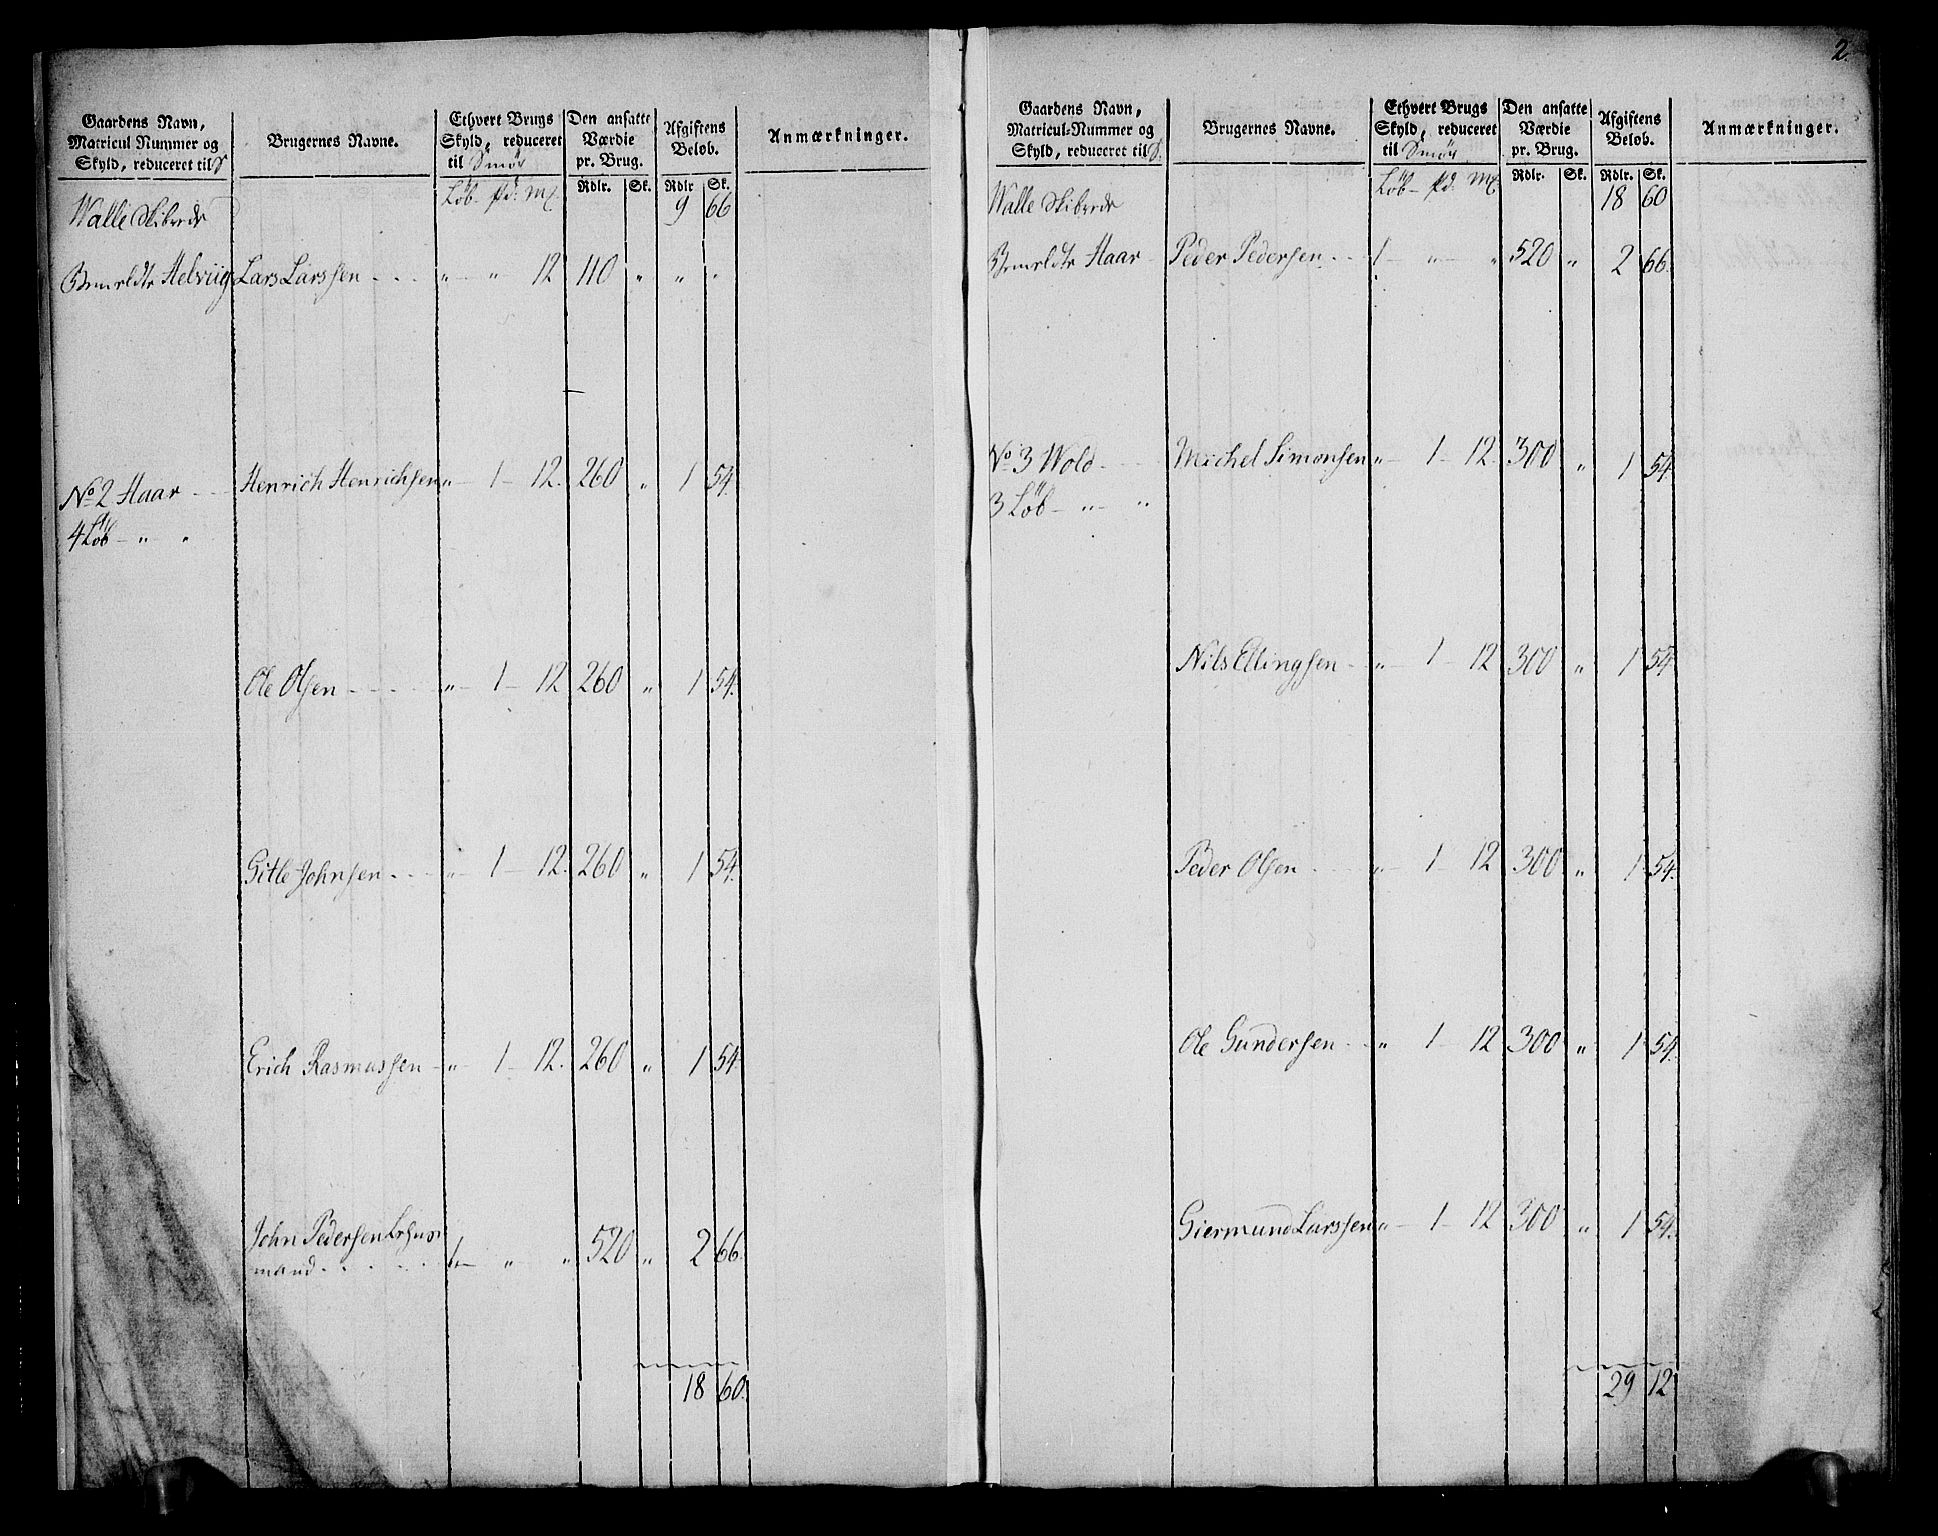 Gaardens Navn, Matricul Nummer og Skyld, reduceret til S | Brugernes Navne. | Ethvert Brugs Skyld, reduceret til Smör | Den ansatte Værdie pr. Brug. | Afgiftens Beløb. | Anmærkninger.
Löb – pd. Mk | Rdlr. | Sk. | Rdlr | Sk.
Walle Skibrede 9 66
Helviig Lars Larssen . . . „ „ 12 110 „ „ „
No 2 Haar Henrich Henrichsen „ 1 – 12. 260 „ 1 54.
4 Löb – „ „
Ole Olsen „ 1 – 12 260 „ 1 54.
Gitle Johnsen „ 1 – 12. 260 „ 1 54.
Erich Rasmussen „ 1 – 12. 260 „ 1 54
John Pedersen
mand . . . . . 1 „ „ 520 „ 2 66.
18 60.
2.
Gaardens Navn, Matricul-Nummer og Skyld, reduceret til S. | Brugernes Navne. | Ethvert Brugs Skyld, reduceret til Smör | Den ansatte Værdie pr. Brug. | Afgiftens Beløb. | Anmærkninger.
Löb – pd. Mk | Rdlr. | Sk. | Rdlr. | Sk.
Walle Skibrede 18 60
Haar Peder Pedersen 1 „ „ 520 „ 2 66.
No 3 Wold Michel Simonsen „ 1 – 12. 300 „ 1 54.
3 Löb – „ „
Nils Ellingsen „ 1 – 12 300 „ 1 54
Peder Olsen „ 1 – 12 300 „ 1 54.
Ole Gundersen „ 1 – 12 300 „ 1 54.
Giermund Larssen „ 1 – 12 300 „ 1 54.
29 12